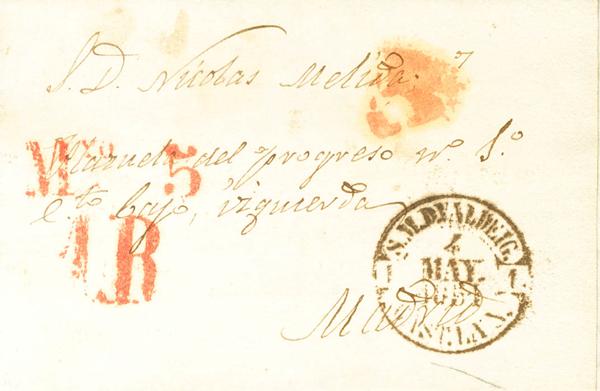 S. D. Nicolas Melida
Plazuela del progreso nº.
c.to bajo, izquierda
Madrid
Myo 5
1R
S.M.DVALDEIG.
4
MAY.
1851
T.LA N.